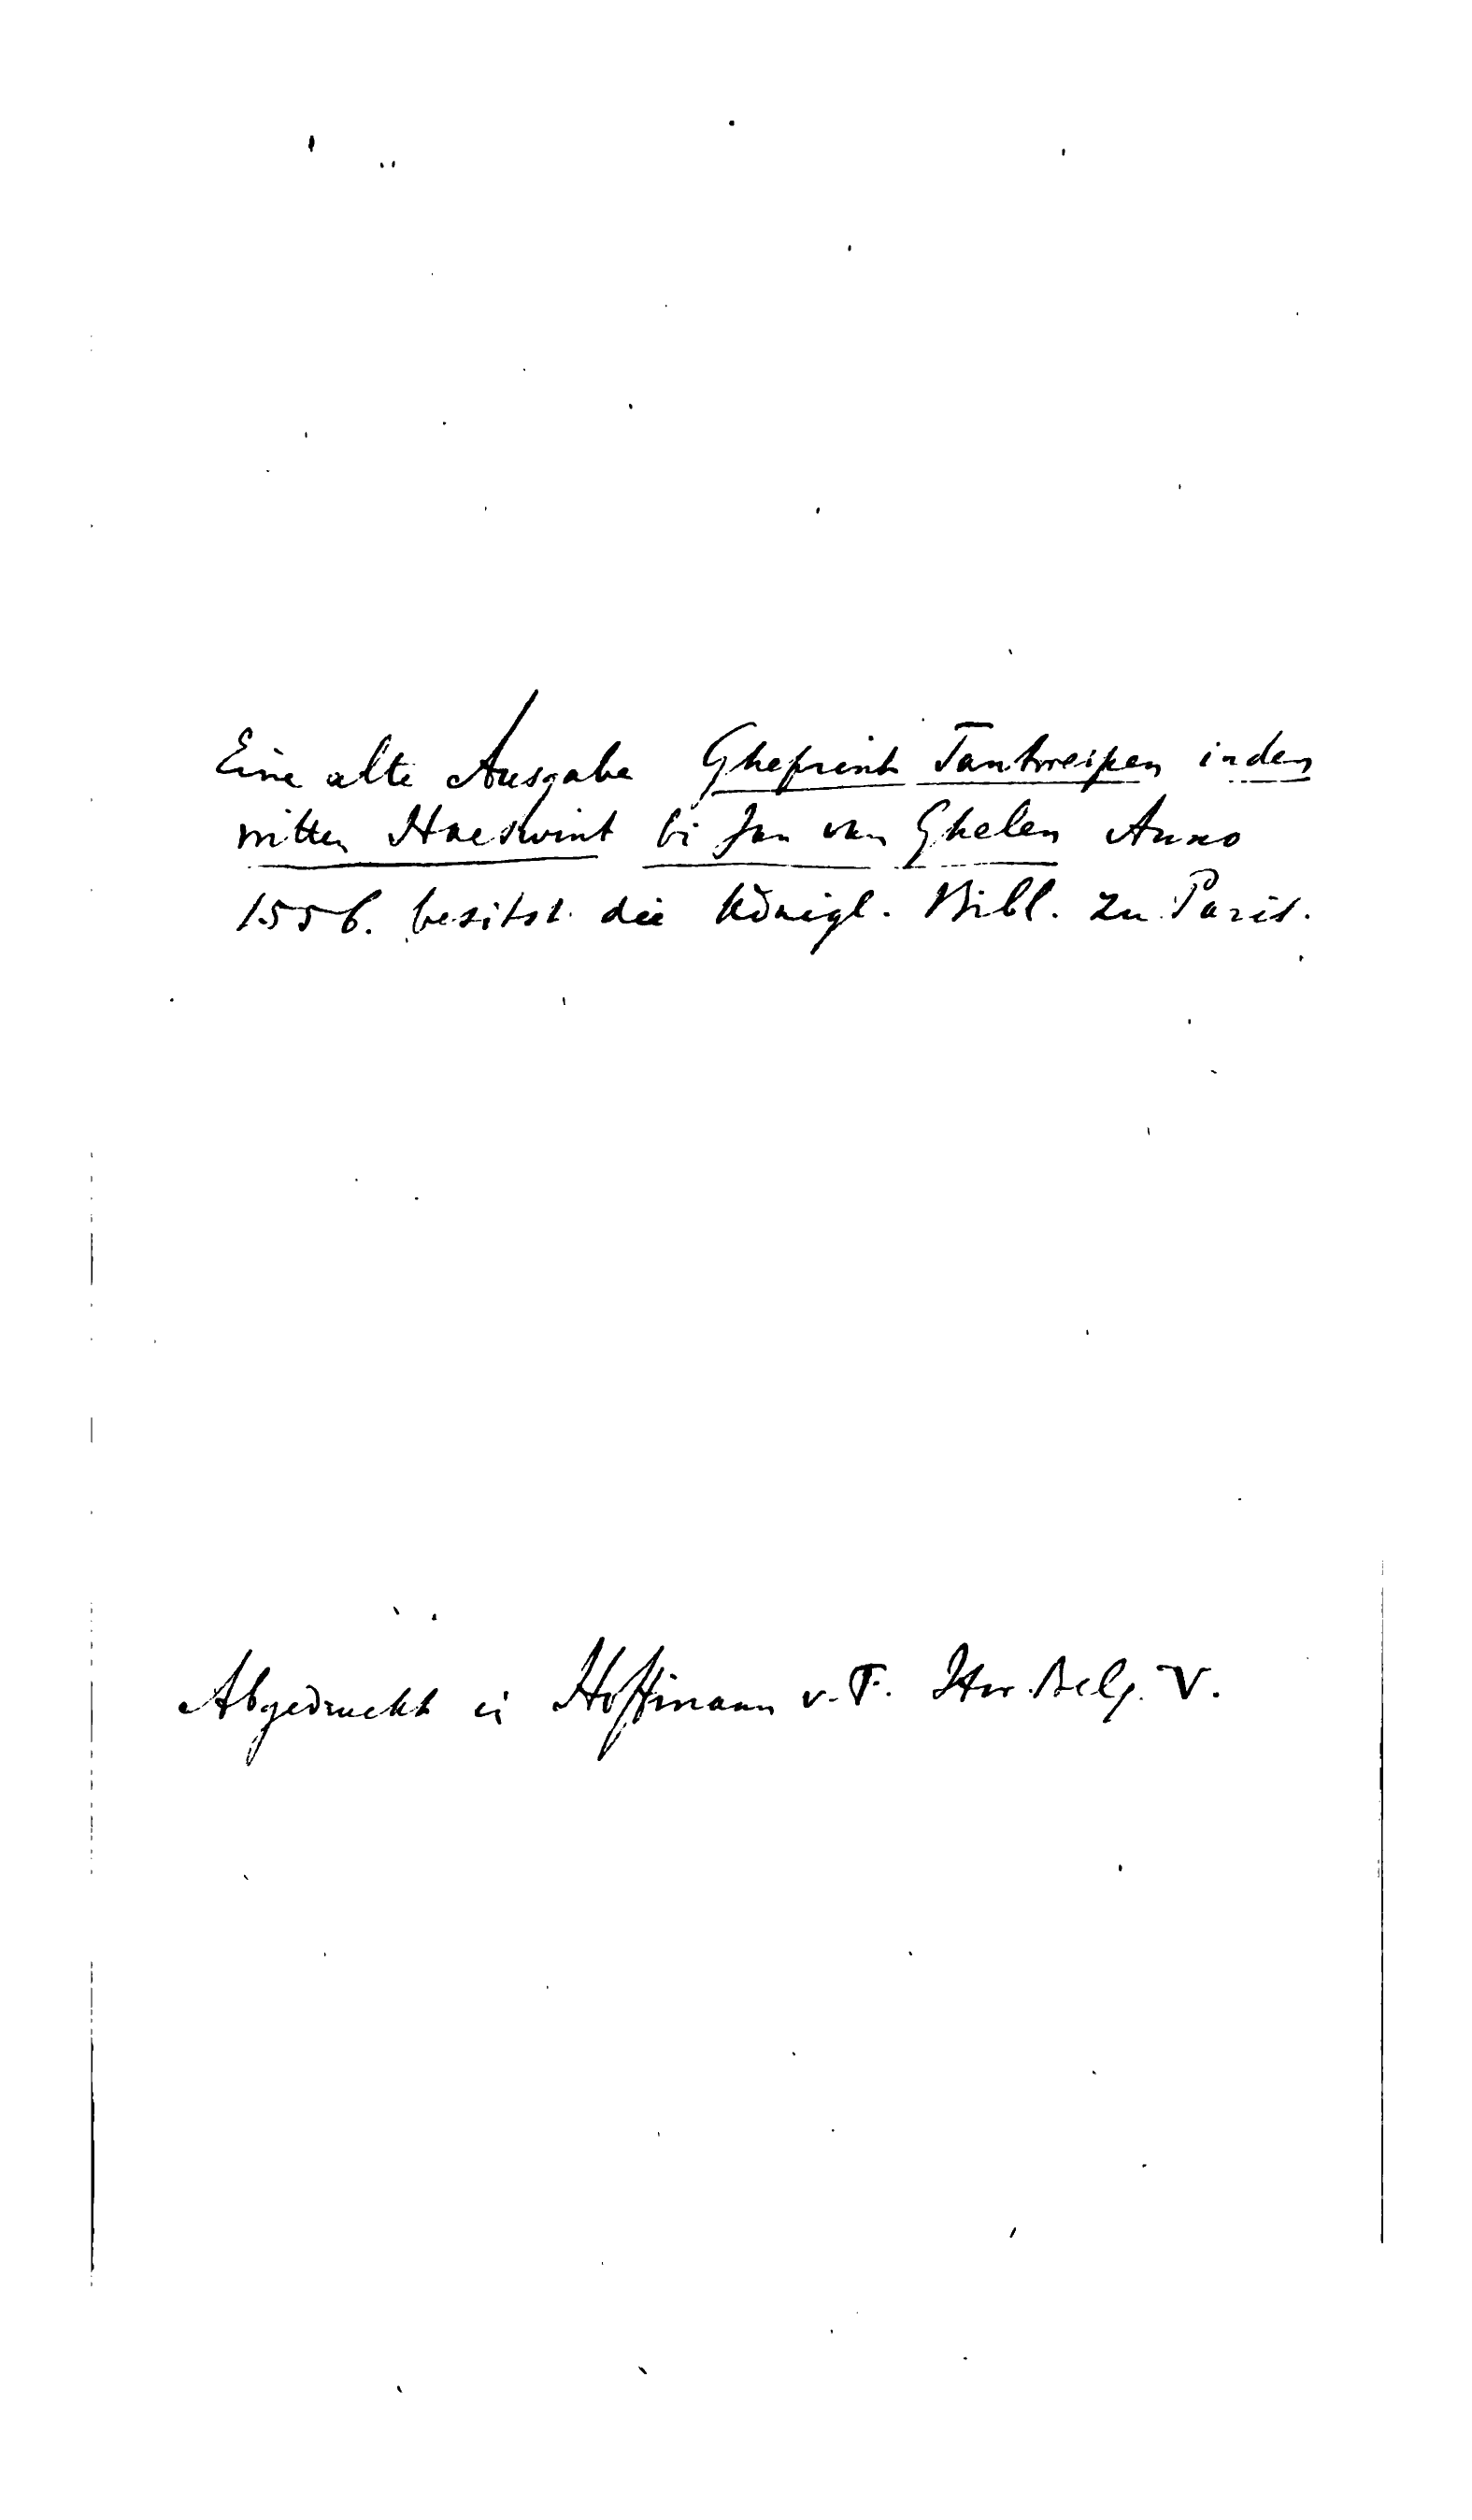 Eine alte Ausgabe Gheprint Tantwerpen inden
witten Haeswint bi Jan van Ghelen Anno
1556. besitzt die Königl. Bibl. zu Paris.
Abgedruckt in Hoffmann v. F. Hor. Belg. V.